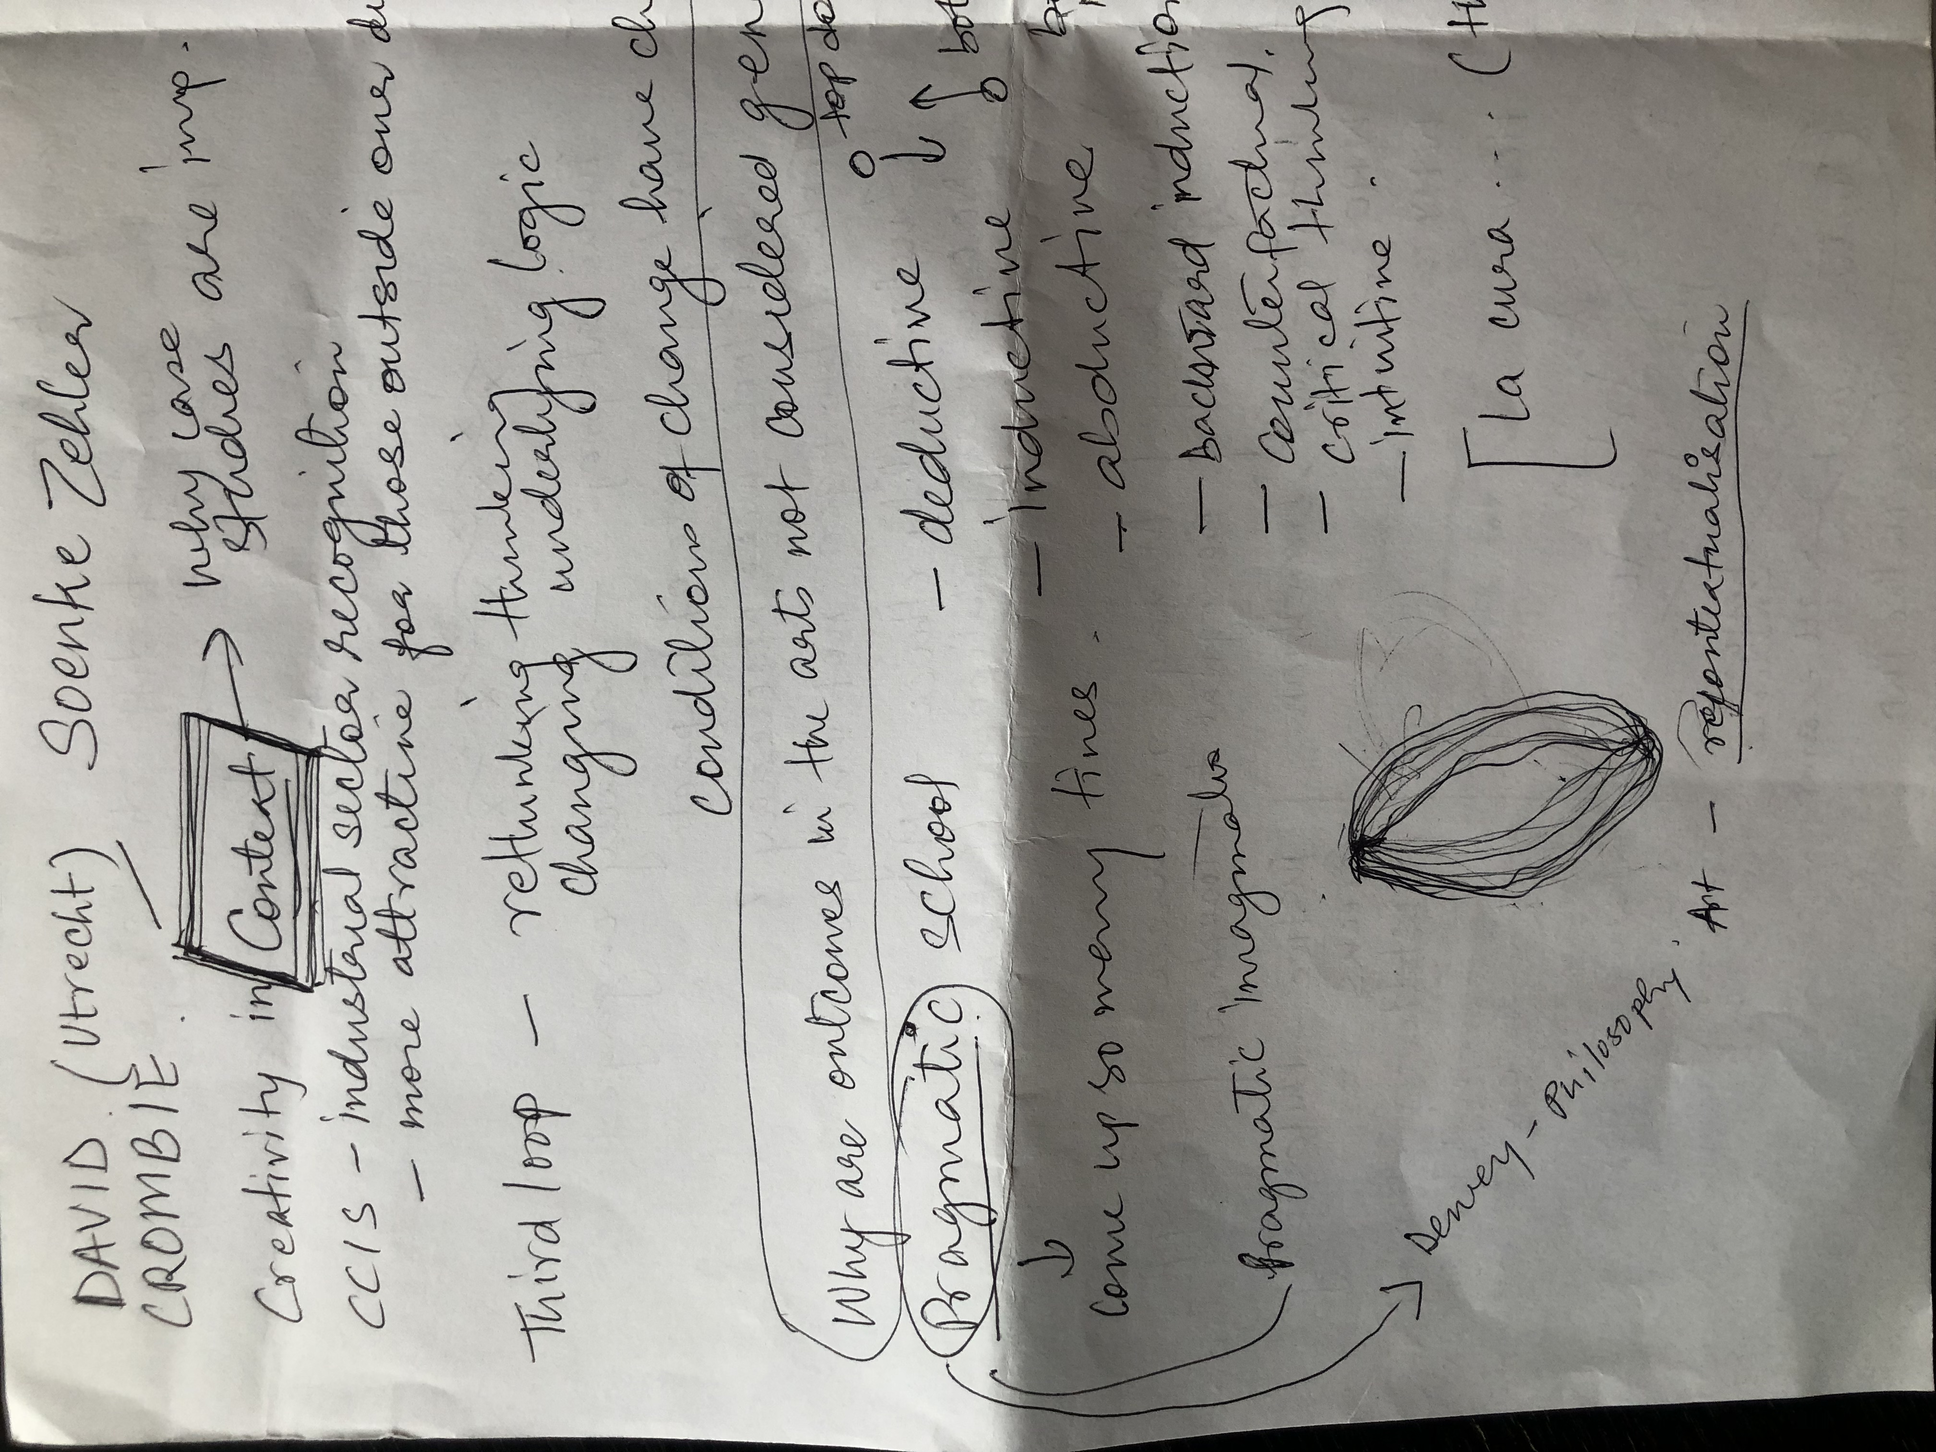 DAVID (Utrecht) Soenke Zehler
CROMBIE
Creativity in Context → why case
studies are imp.
CCIS - industrial sector recognition
- more attractive for those outside our
Third loop - rethinking thinking
changing underlying logic
conditions of change have ch
Why are outcomes in the arts not considered gen
Pragmatic school - deductive top do
- inductive bot
come up so many times. - abductive
- backward induction
Pragmatic imagination - counterfactual.
- critical thinking
- intuitive.
[La cura... (
Dewey - Philosophy.
Art - recontextualisation